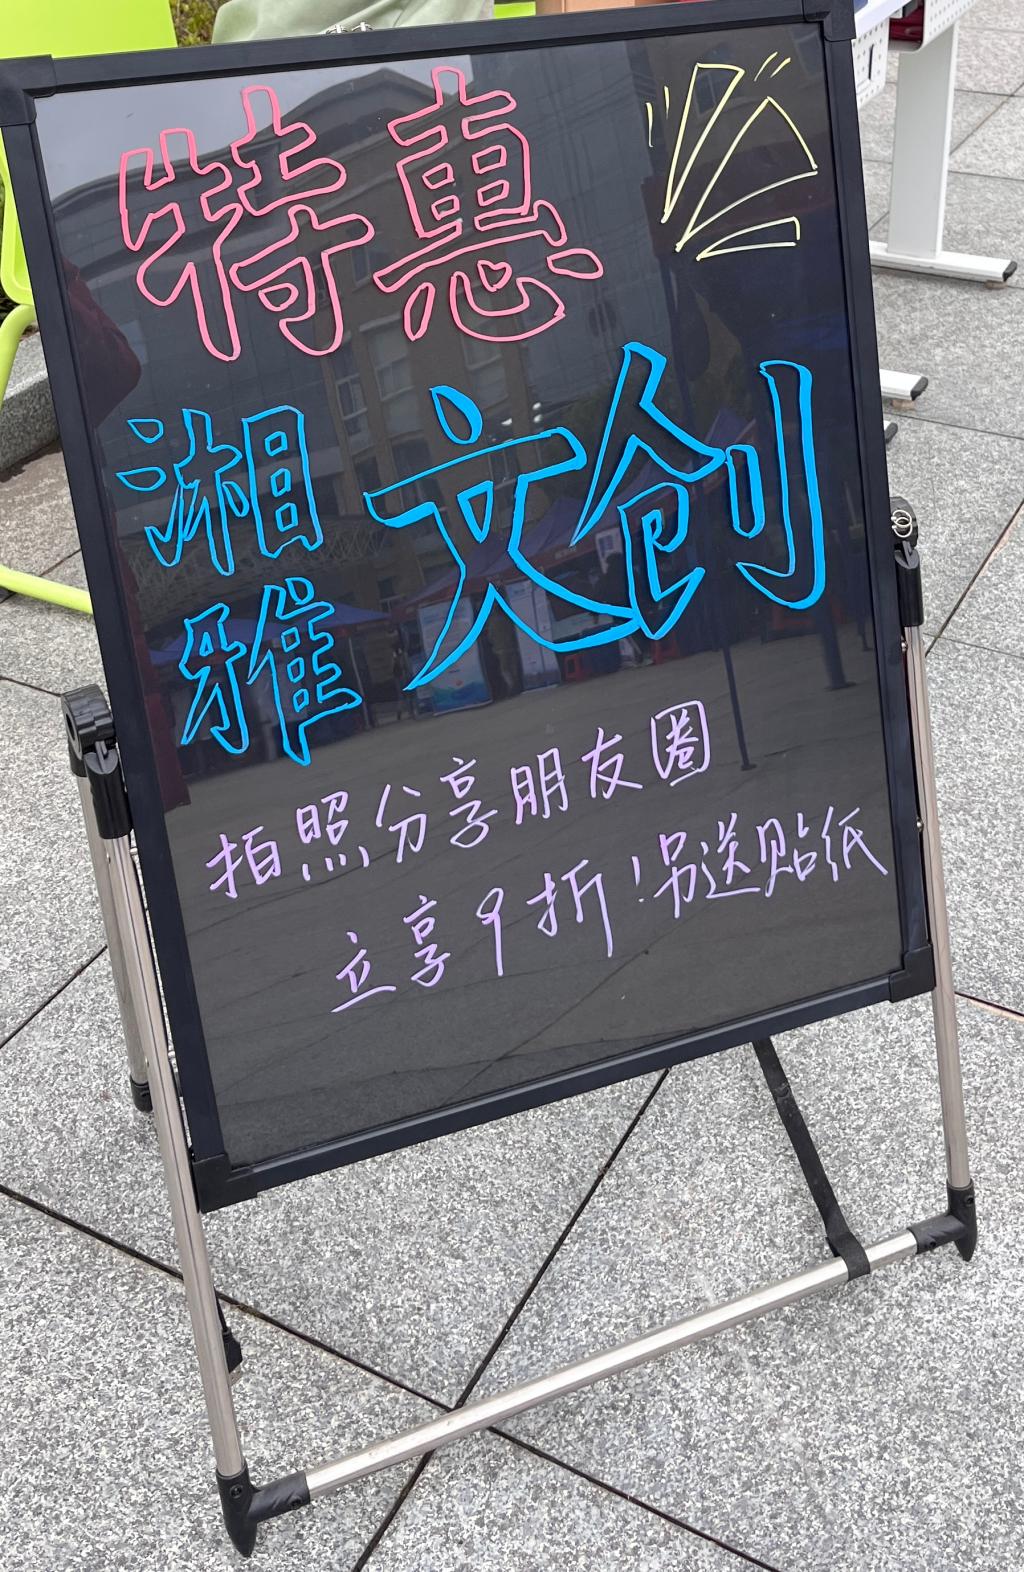 特惠
湘雅文创
拍照分享朋友圈
立享9折!另送贴纸